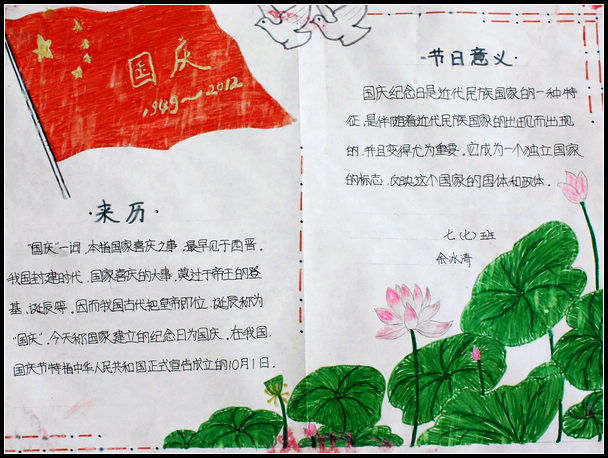 国庆
1949~2012
·来历·
"国庆"一词,本指国家喜庆之事,最早见于西晋。
我国封建时代、国家喜庆的大事,莫过于帝王的登
基、诞辰等。因而我国古代把皇帝即位、诞辰称为
"国庆"。今天称国家建立的纪念日为国庆。在我国,
国庆节特指中华人民共和国正式宣告成立的10月1日。
·节日意义·
国庆纪念日是近代民族国家的一种特
征,是伴随着近代民族国家的出现而出现
的,并且变得尤为重要。它成为一个独立国家
的标志,反映这个国家的国体和政体。
七(七)班
余冰涛